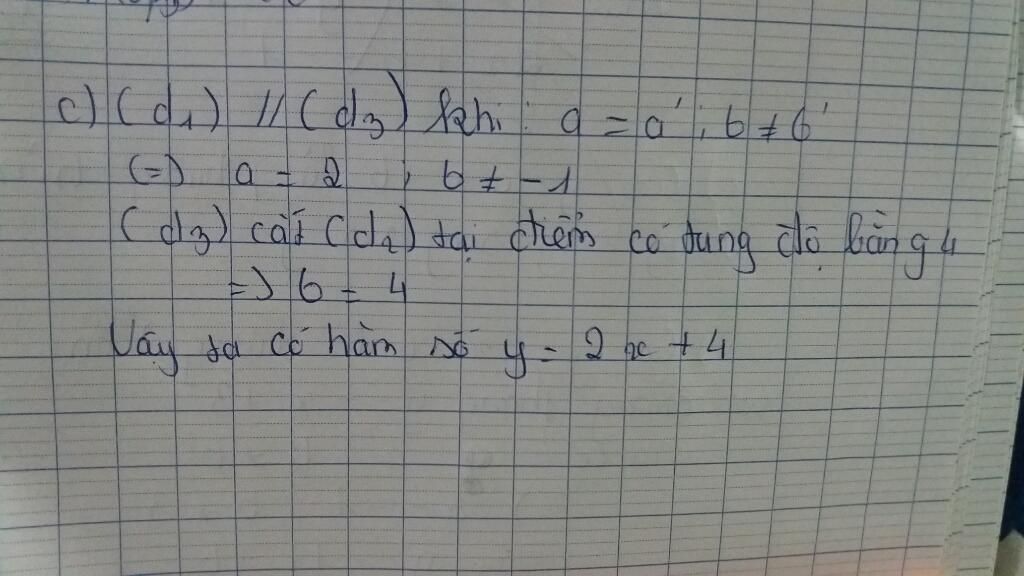 c) (d1) // (d3) khi: a = a'; b ≠ b'
(=) a = 2 ; b ≠ -1
(d3) cắt (d2) tại điểm có tung độ bằng 4
=) b = 4
Vậy ta có hàm số y = 2x + 4